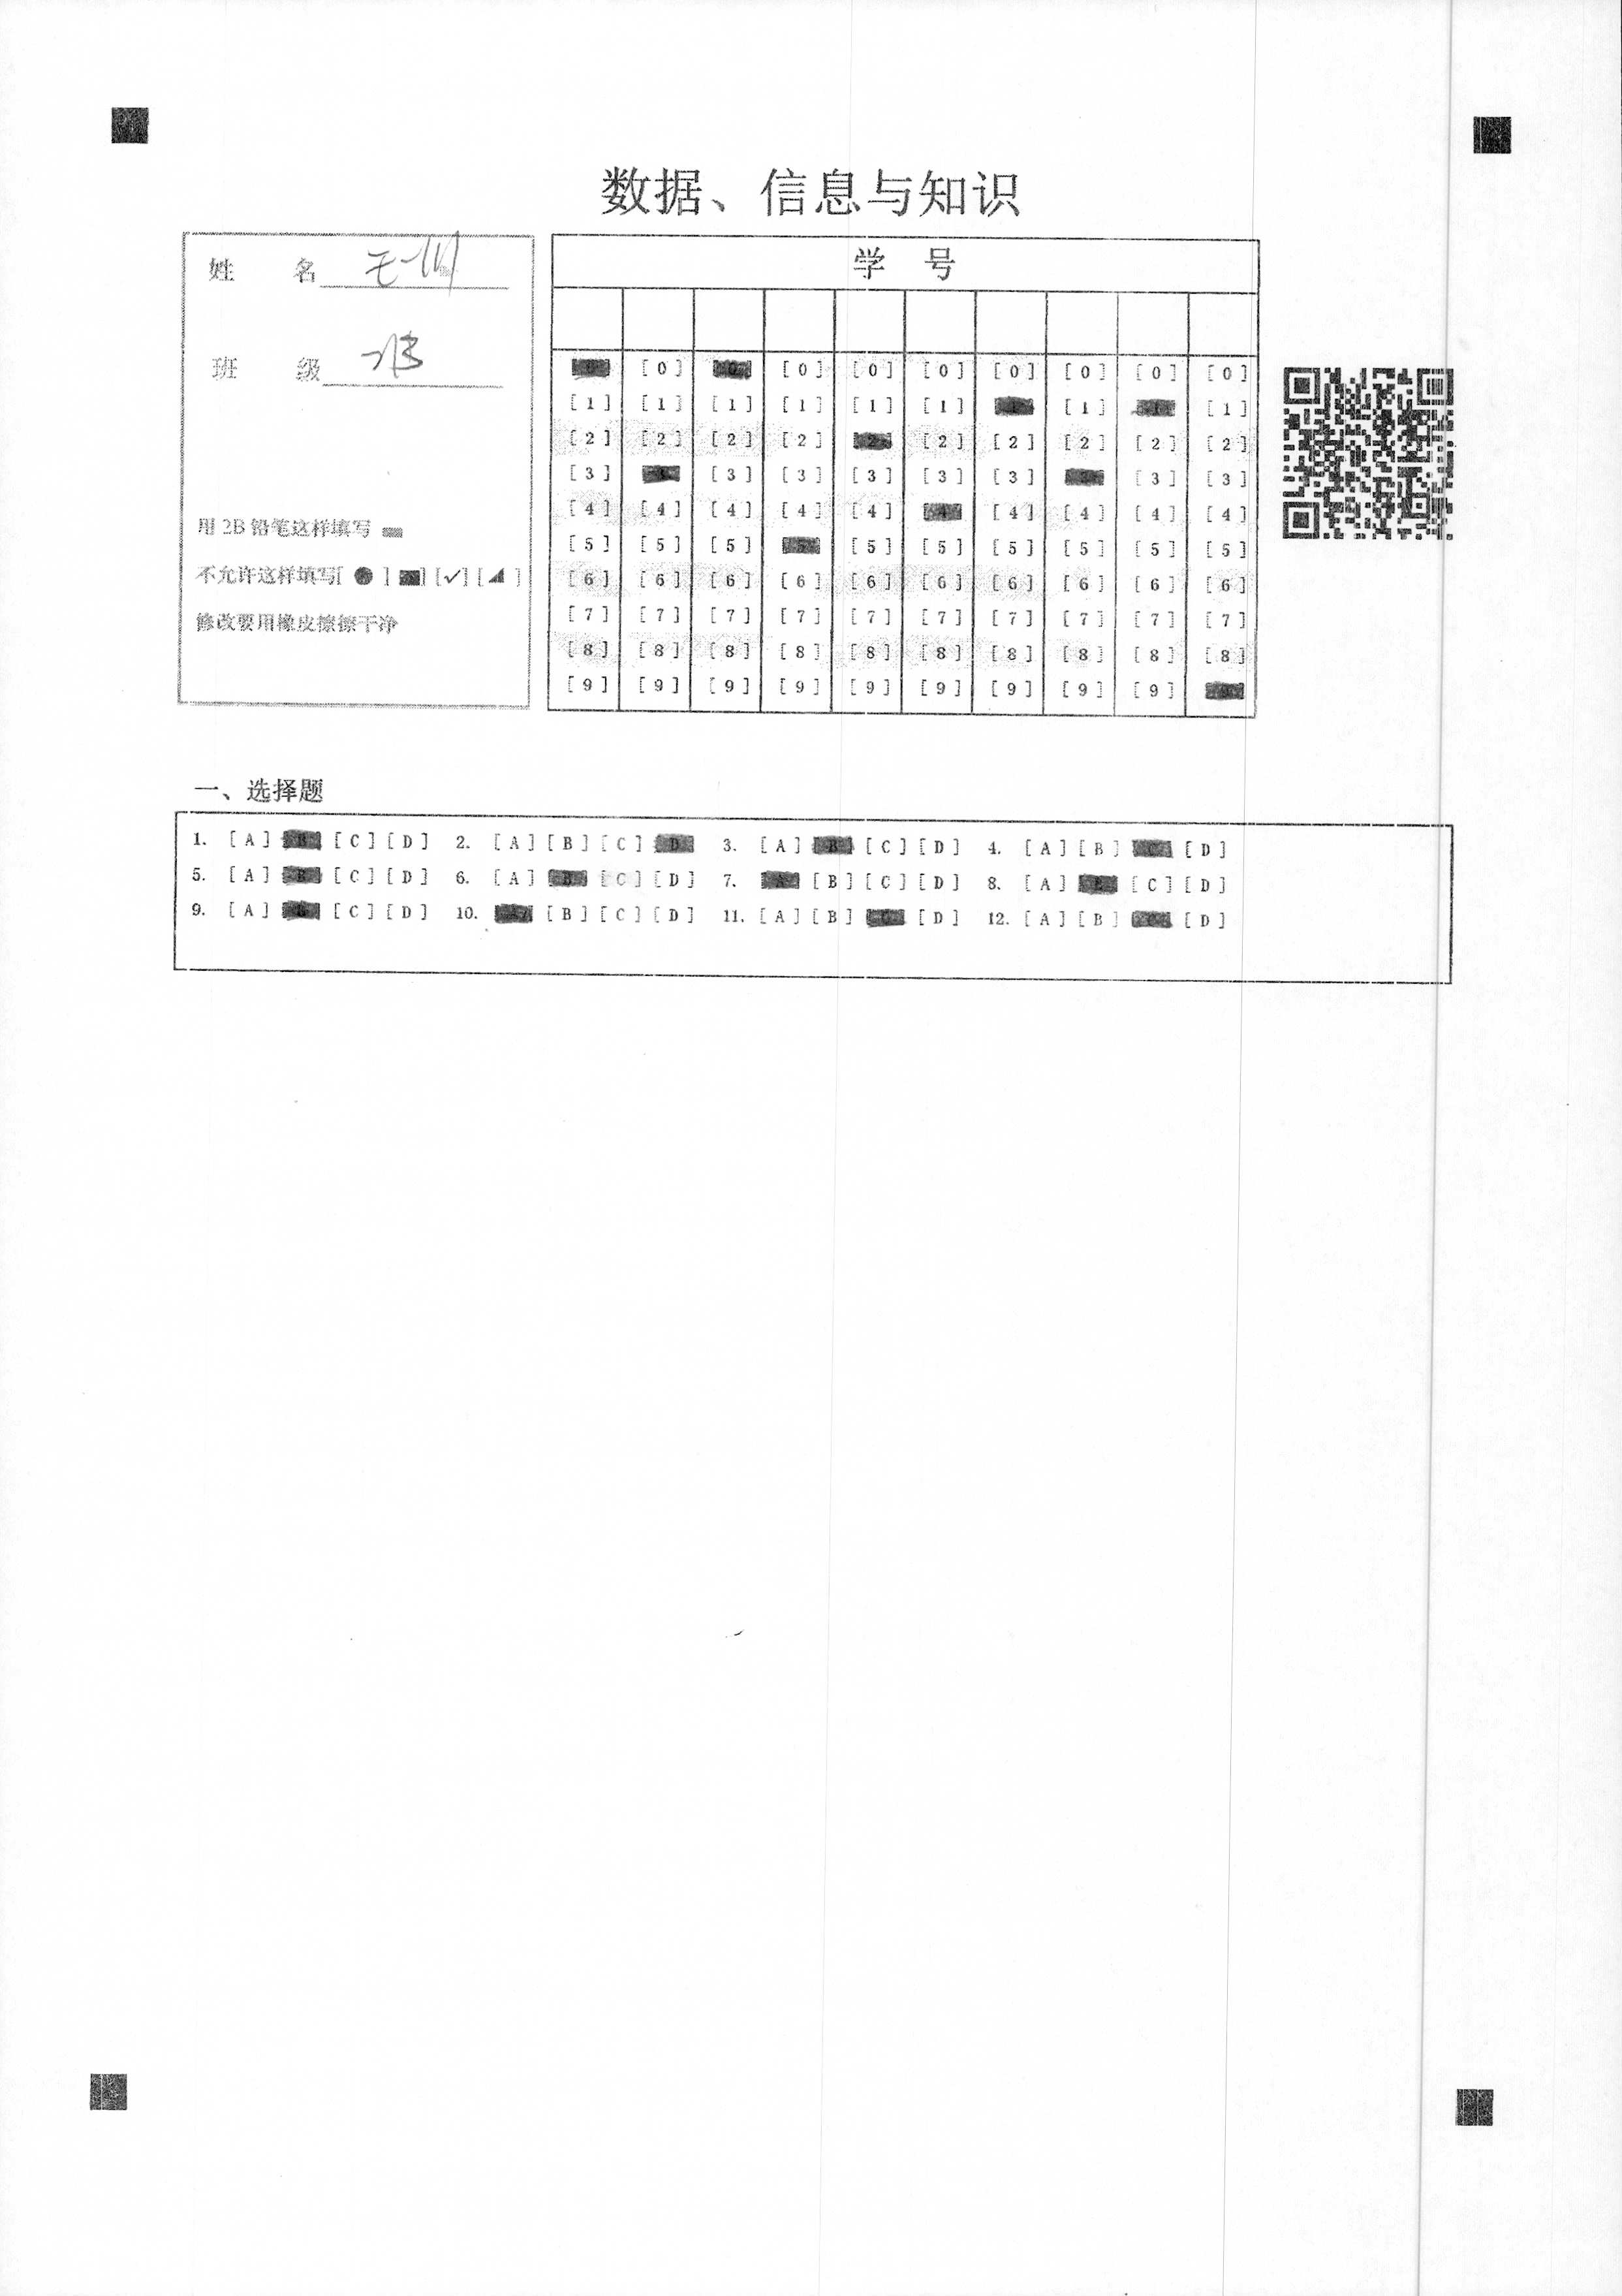 数据、信息与知识
姓 名
班 级
用 2B 铅笔这样填写
不允许这样填写[ ● ] [■] [✓] [◢ ]
修改要用橡皮擦擦干净
学 号
[0] [0] [0] [0] [0] [0] [0] [0]
[1] [1] [1] [1] [1] [1] [1] [1]
[2] [2] [2] [2] [2] [2] [2] [2] [2]
[3] [3] [3] [3] [3] [3] [3] [3]
[4] [4] [4] [4] [4] [4] [4] [4] [4]
[5] [5] [5] [5] [5] [5] [5] [5] [5]
[6] [6] [6] [6] [6] [6] [6] [6] [6] [6]
[7] [7] [7] [7] [7] [7] [7] [7] [7] [7]
[8] [8] [8] [8] [8] [8] [8] [8] [8] [8]
[9] [9] [9] [9] [9] [9] [9] [9] [9]
一、选择题
1. [A] [B] [C] [D] 2. [A] [B] [C] [D] 3. [A] [B] [C] [D] 4. [A] [B] [C] [D]
5. [A] [B] [C] [D] 6. [A] [B] [C] [D] 7. [A] [B] [C] [D] 8. [A] [B] [C] [D]
9. [A] [B] [C] [D] 10. [A] [B] [C] [D] 11. [A] [B] [C] [D] 12. [A] [B] [C] [D]